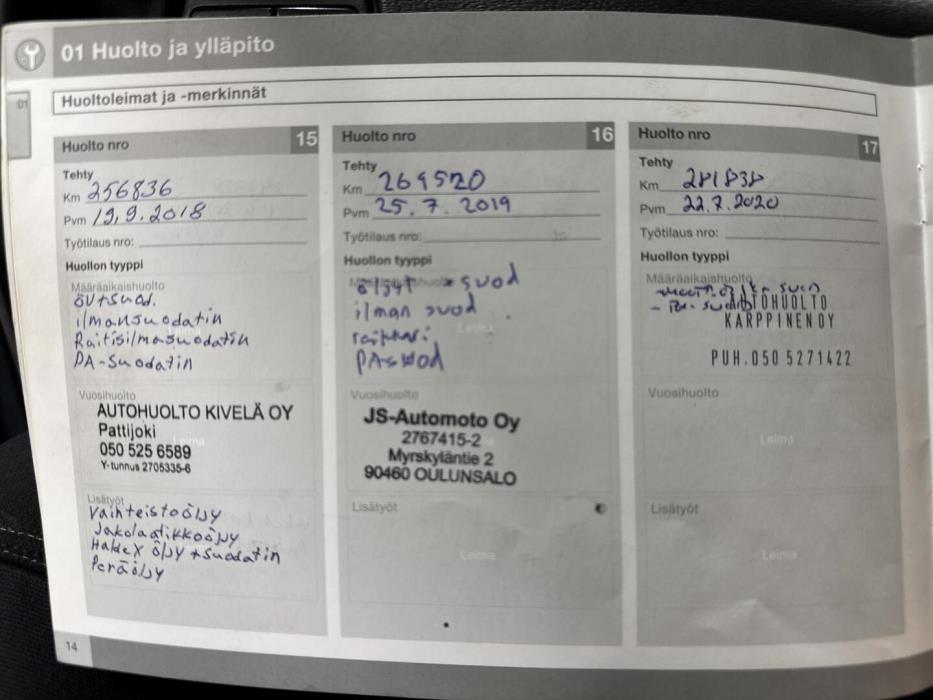 01 Huolto ja ylläpito
01
Huoltoleimat ja -merkinnät
Huolto nro 15
Tehty
Km 256836
Pvm 19.9.2018
Työtilaus nro:
Huollon tyyppi
Määräaikaishuolto
öljy+suod.
ilmansuodatin
Raitisilmasuodatin
PA-suodatin
Vuosihuolto
AUTOHUOLTO KIVELÄ OY
Pattijoki
050 525 6589
Y-tunnus 2705335-6
Leima
Lisätyöt
Vaihteistoöljy
Jakolaatikkoöljy
Haldex öljy +suodatin
Peräöljy
Huolto nro 16
Tehty
Km 269520
Pvm 25.7.2019
Työtilaus nro:
Huollon tyyppi
öljyt + suod
ilman suod
raikkari
PA suod
Vuosihuolto
JS-Automoto Oy
2767415-2
Myrskyläntie 2
90460 OULUNSALO
Lisätyöt
Leima
Huolto nro 17
Tehty
Km 281838
Pvm 22.7.2020
Työtilaus nro:
Huollon tyyppi
Määräaikaishuolto
KARPPINEN OY
PUH.050 5271422
Vuosihuolto
Leima
Lisätyöt
Leima
14